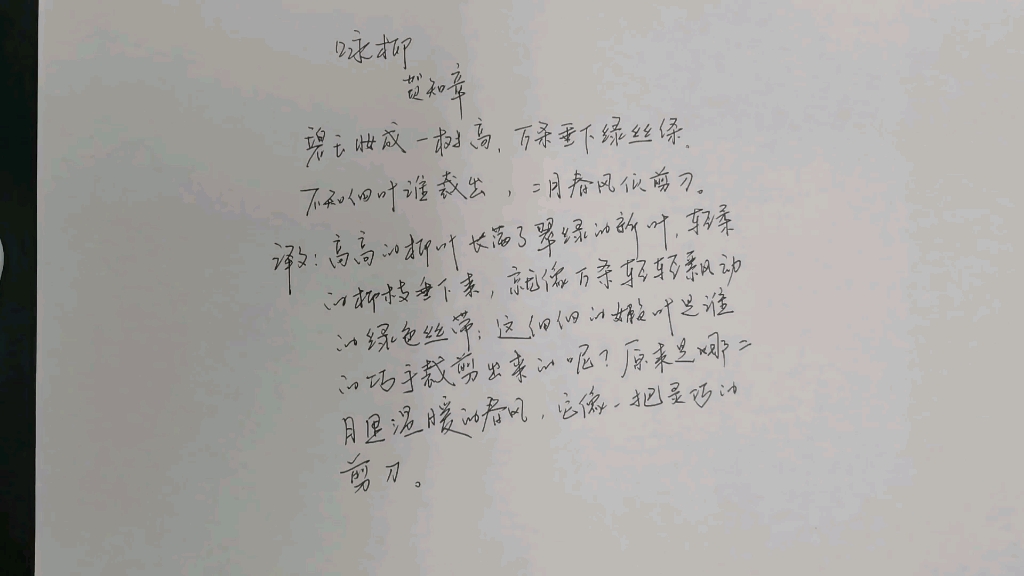 咏柳
贺知章
碧玉妆成一树高,万条垂下绿丝绦。
不知细叶谁裁出,二月春风似剪刀。
译文:高高的柳叶长满了翠绿的新叶,轻柔
的柳枝垂下来,就像万条轻轻飘动
的绿色丝带;这细细的嫩叶是谁
的巧手裁剪出来的呢?原来是那二
月里温暖的春风,它像一把灵巧的
剪刀。